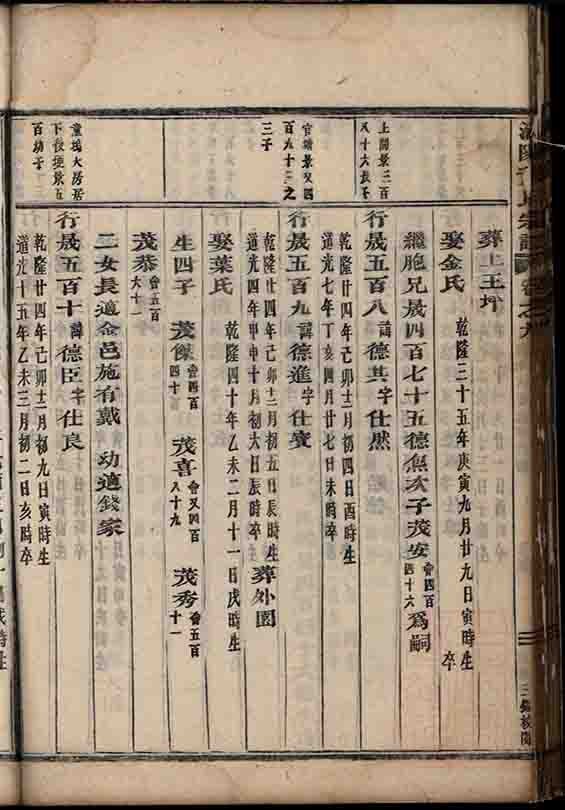 宗譜
葬上王坪
娶金氏 乾隆三十五年庚寅九月廿九日寅時生 卒
繼胞兄晟四百七十五德焦次子茂安會四百四十六為嗣
上園景三百八十六長子
行晟五百八諱德其字仕然
乾隆廿四年己卯十二月初四日酉時生
道光七年丁亥四月廿七日未時卒
官塘景又四百九十三之三子
行晟五百九諱德進字仕
乾隆廿四年己卯十二月初五日辰時生
道光四年甲申十月初六日辰時卒 葬外園
娶葉氏 乾隆四十年乙未二月十一日戌時生
生四子 茂傑會四百四十 茂喜會又四百八十九 茂秀會五百十一
茂恭會五百六十一
二女長適金邑施有戴 幼適錢家
塢大房居下段景五百幼子
行晟五百十諱德臣字仕良
乾隆廿四年己卯十二月初九日寅時生
道光十五年乙未三月初二日亥時卒